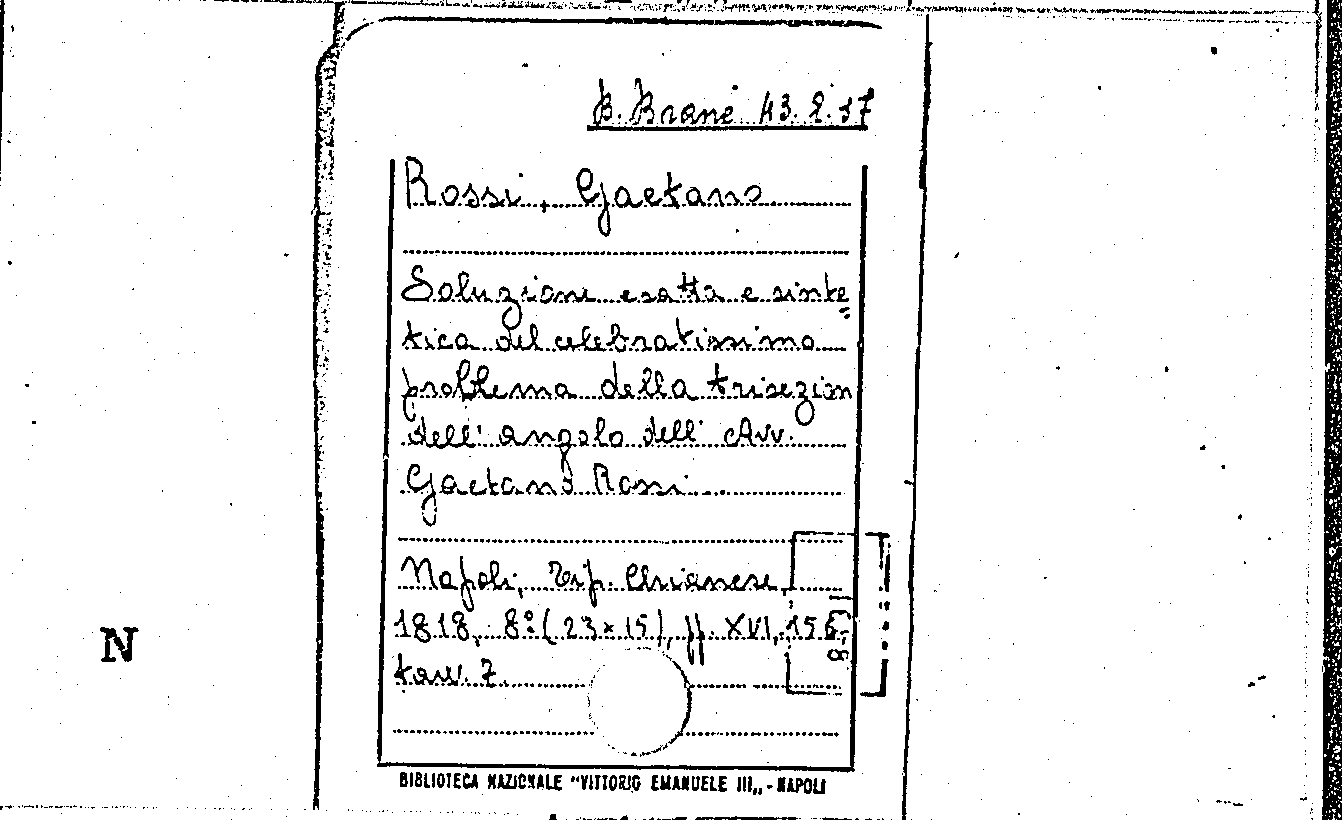 B. Branc. 43. E. 37
Rossi, Gaetano
Soluzione esatta e sinte=
tica del celebratissimo
problema della trisezion
dell' angolo dell' Avv.
Gaetano Rossi
Napoli, Tip. Chianese,
1818, 8° (23×15), pp. XVI, 156
tavv. 7.
N
BIBLIOTECA NAZIONALE "VITTORIO EMANUELE III„ - NAPOLI